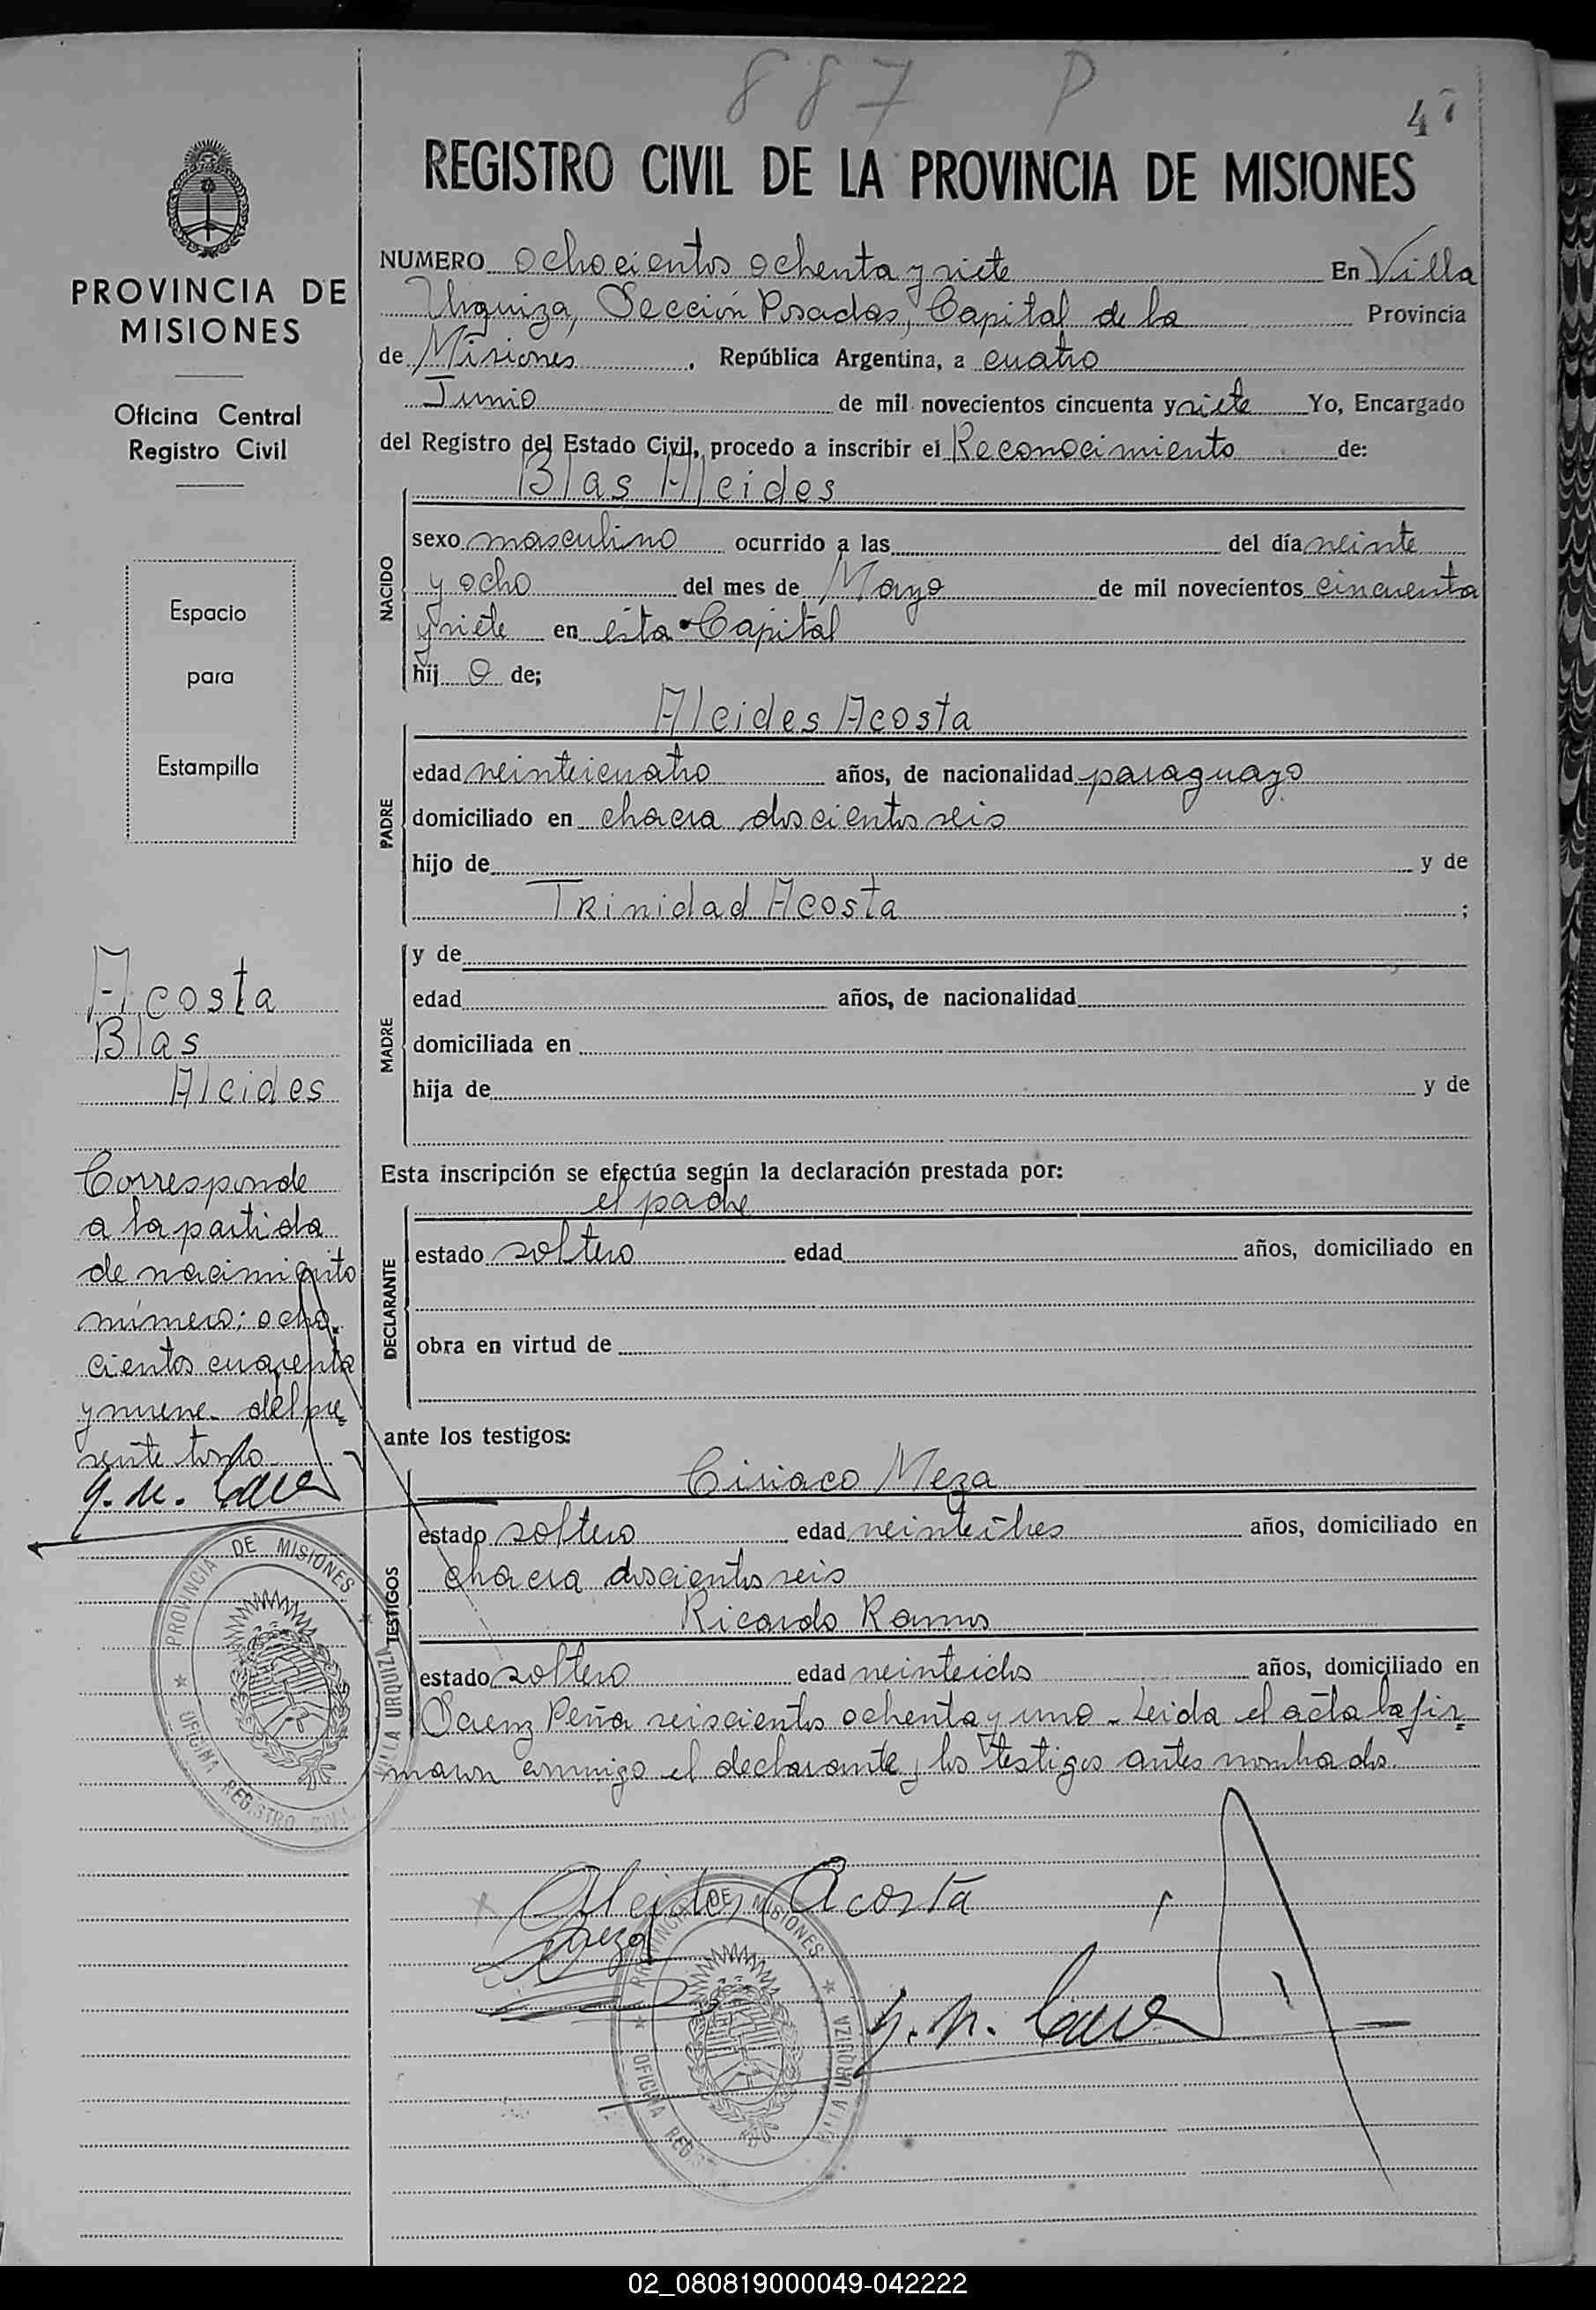 887 P
47
REGISTRO CIVIL DE LA PROVINCIA DE MISIONES
PROVINCIA DE
MISIONES
Oficina Central
Registro Civil
Espacio
para
Estampilla
Acosta
Blas
Alcides
Corresponde
a la partida
de nacimiento
número: ocho-
cientos cuarenta
y nueve del pre-
sente tomo
NUMERO ochocientos ochenta y siete En Villa
Urquiza, Sección Posadas, Capital de la Provincia
de Misiones, República Argentina, a cuatro
Junio de mil novecientos cincuenta y siete Yo, Encargado
del Registro del Estado Civil, procedo a inscribir el Reconocimiento de:
Blas Alcides
NACIDO
sexo masculino ocurrido a las del día veinte
y ocho del mes de Mayo de mil novecientos cincuenta
y siete en ésta Capital
hij o de;
Alcides Acosta
PADRE
edad veinteicuatro años, de nacionalidad paraguayo
domiciliado en chacra doscientos seis
hijo de y de
Trinidad Acosta ;
MADRE
y de
edad años, de nacionalidad
domiciliada en
hija de y de
Esta inscripción se efectúa según la declaración prestada por:
el padre
DECLARANTE
estado soltero edad años, domiciliado en
obra en virtud de
ante los testigos:
Ciriaco Meza
TESTIGOS
estado soltero edad veinteitres años, domiciliado en
chacra doscientos seis
Ricardo Ramos
estado soltero edad veinteidos años, domiciliado en
Saenz Peña seiscientos ochenta y uno - Leida el acta la fir-
maron conmigo el declarante y los testigos antes nombrados.
Alcides Acosta
Meza
PROVINCIA DE MISIONES
VILLA URQUIZA
OFICINA REGISTRO CIVIL
PROVINCIA DE MISIONES
VILLA URQUIZA
OFICINA
02_080819000049-042222